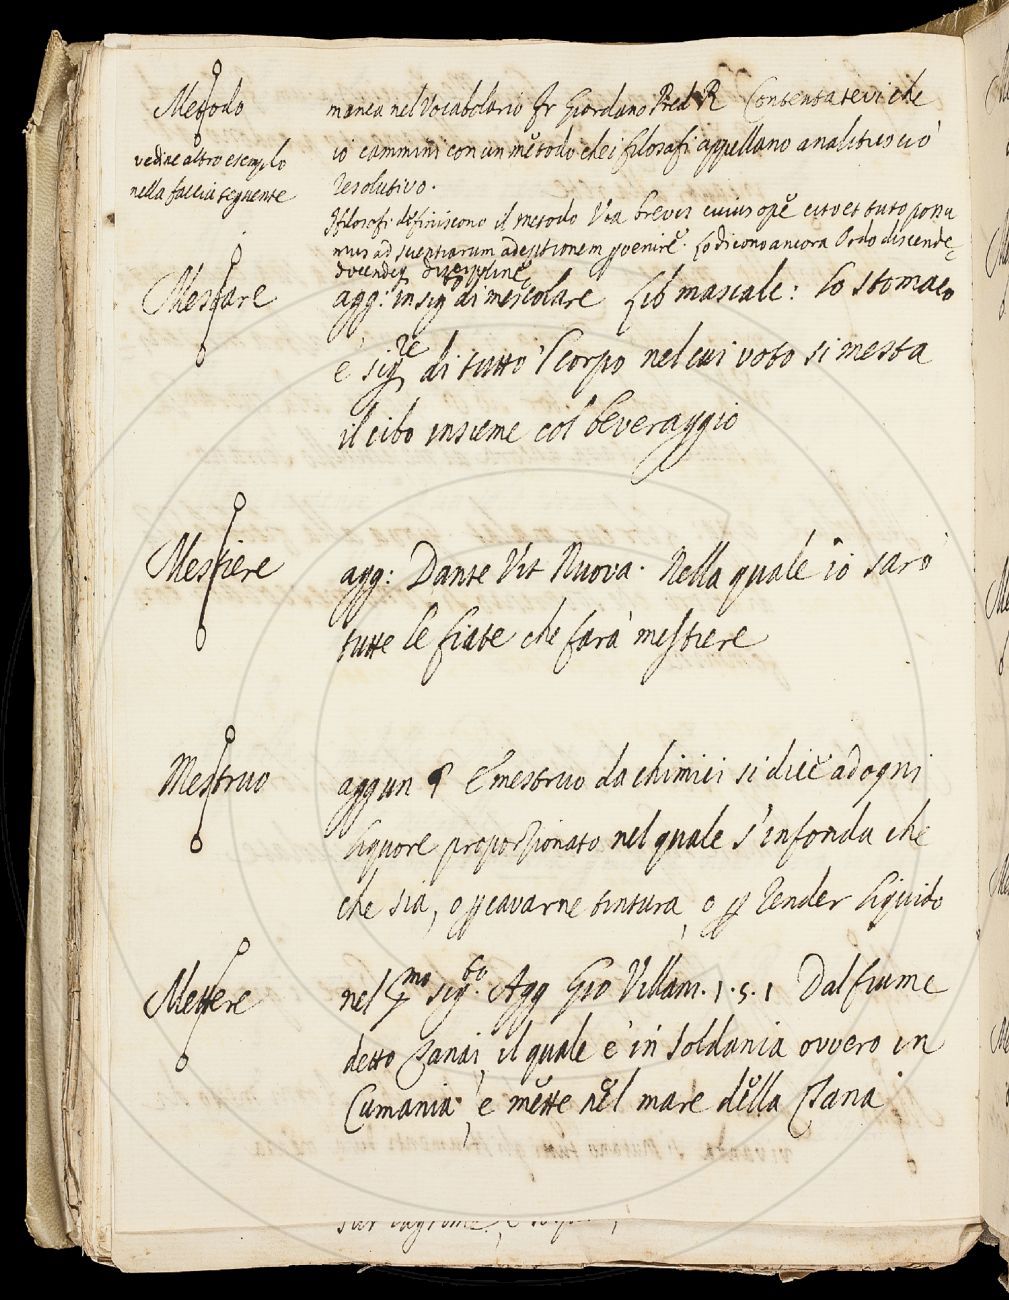 Metodo
vedi ae altro esemplo
nella faccia seguente
manca nel Vocabolario Fr Giordano Pred R Contentatevi che
io cammini con un metodo che i filosafi appellano analitico ciò
resolutivo.
I filosofi definiscono il metodo Via brevis cuius ope cito et tuto possu
mus ad scientiarum adeptionem pvenire. Lo dicono ancora Ordo discende
docendeq discipline
Mestare
agg: in sig.to di mescolare Lib mascale: Lo stomaco
è sig.re di tutto 'l corpo nel cui voto si mesta
il cibo insieme col beveraggio
Mestiere
agg: Dante Vit Nuova. Nella quale io sarò
tutte le fiate che farà mestiere
Mestruo
agg un § E mestruo da chimici si dice ad ogni
liquore proporzionato nel quale s'infonda che
che sia, o p cavarne tintura, o p render liquido
Mettere
nel 4.mo sig.to Agg Gio Villani. 1. 5. 1 Dal fiume
detto Tanai, il quale è in Soldania ovvero in
Cumania, e mette nel mare della Tana